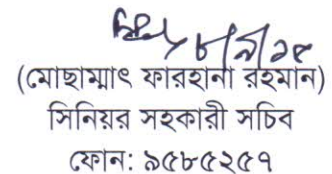 ৮/৯/১৫
(মোছাম্মাৎ ফারহানা রহমান)
সিনিয়র সহকারী সচিব
ফোন: ৯৫৮৫২৫৭